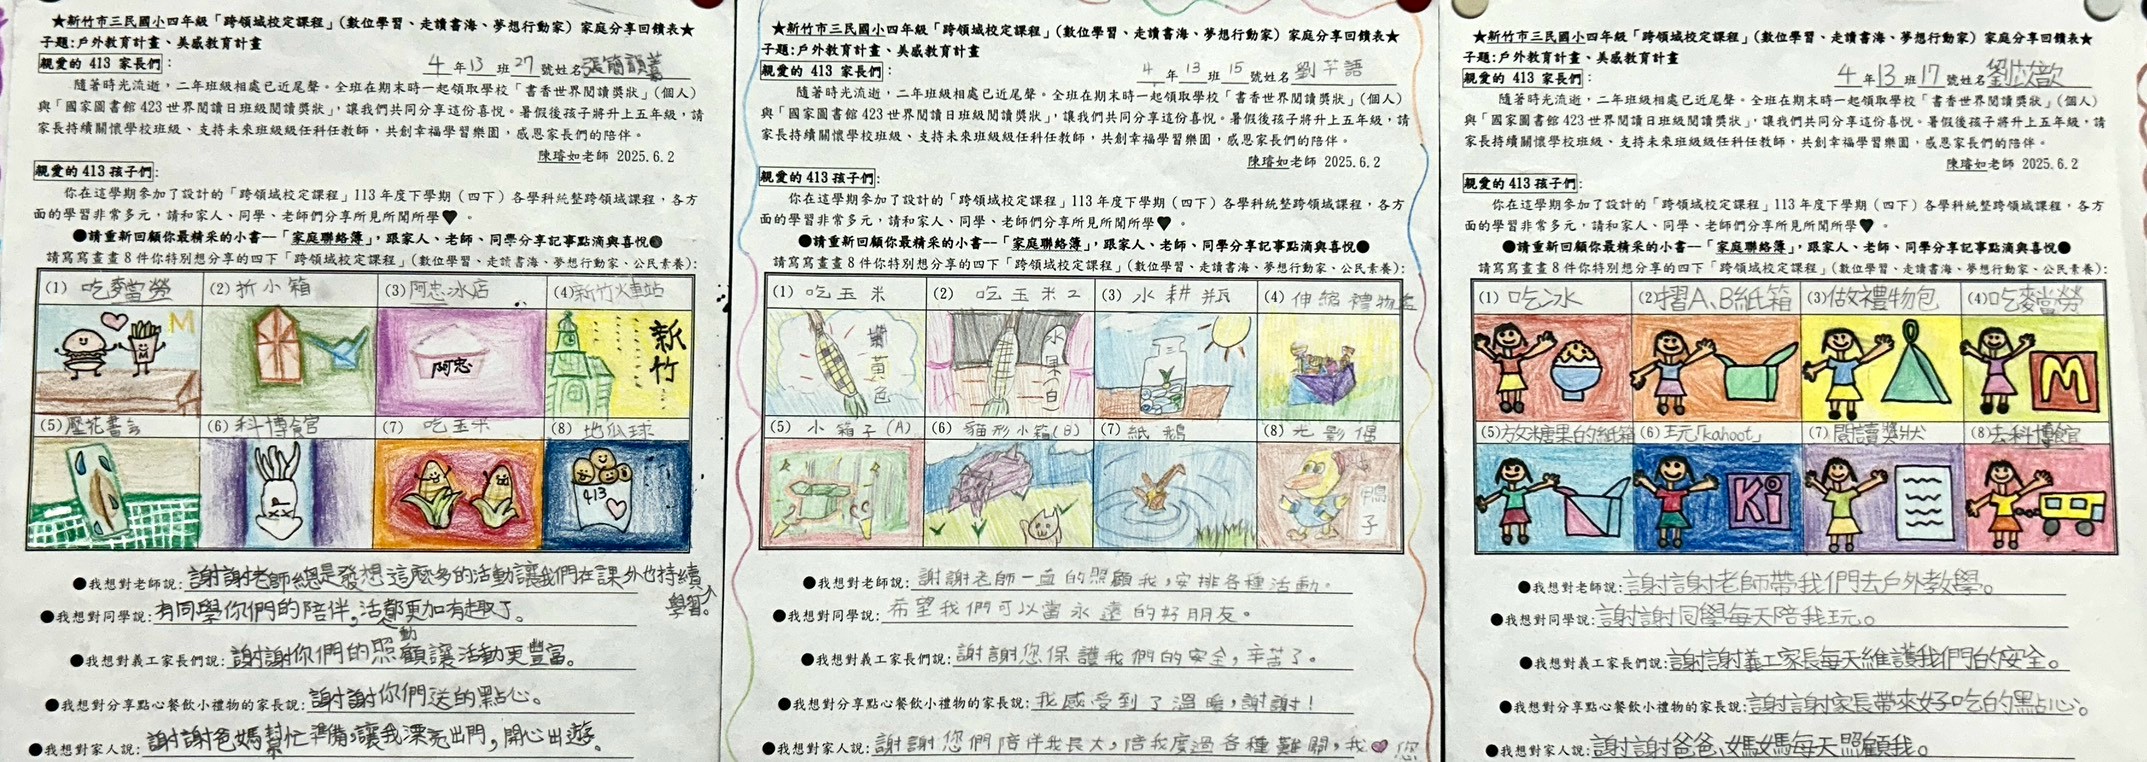 ★新竹市三民國小四年級「跨領域校定課程」(數位學習、走讀書海、夢想行動家) 家庭分享回饋表★
子題:戶外教育計畫、美感教育計畫
親愛的 413 家長們：
4 年 13 班 27 號姓名 張簡
隨著時光流逝，二年班級相處已近尾聲。全班在期末時一起領取學校「書香世界閱讀獎狀」(個人)
與「國家圖書館 423 世界閱讀日班級閱讀獎狀」，讓我們共同分享這份喜悅。暑假後孩子將升上五年級，請
家長持續關懷學校班級、支持未來班級級任科任教師，共創幸福學習樂園，感恩家長們的陪伴。
陳璿如老師 2025.6.2
親愛的 413 孩子們：
你在這學期參加了設計的「跨領域校定課程」113 年度下學期（四下）各學科統整跨領域課程，各方
面的學習非常多元，請和家人、同學、老師們分享所見所聞所學♥。
●請重新回顧你最精采的小書--「家庭聯絡簿」，跟家人、老師、同學分享記事點滴與喜悅●
請寫寫畫畫 8 件你特別想分享的四下「跨領域校定課程」(數位學習、走讀書海、夢想行動家、公民素養)：
(1) 吃麥當勞 (2) 折小箱 (3) 阿忠冰店 (4) 新竹火車站
M
阿忠
新竹
(5) 壓花書 (6) 科博館 (7) 吃玉米 (8) 地瓜球
413
●我想對老師說：謝謝老師總是發想這麼多的活動讓我們在課外也持續學習。
●我想對同學說：有同學你們的陪伴，活動都更加有趣了。
●我想對義工家長們說：謝謝你們的照顧讓活動更豐富。
●我想對分享點心餐飲小禮物的家長說：謝謝你們送的點心。
●我想對家人說：謝謝爸媽幫忙準備，讓我漂亮出門，開心出遊。
★新竹市三民國小四年級「跨領域校定課程」(數位學習、走讀書海、夢想行動家) 家庭分享回饋表★
子題:戶外教育計畫、美感教育計畫
親愛的 413 家長們：
4 年 13 班 15 號姓名 劉芊語
隨著時光流逝，二年班級相處已近尾聲。全班在期末時一起領取學校「書香世界閱讀獎狀」(個人)
與「國家圖書館 423 世界閱讀日班級閱讀獎狀」，讓我們共同分享這份喜悅。暑假後孩子將升上五年級，請
家長持續關懷學校班級、支持未來班級級任科任教師，共創幸福學習樂園，感恩家長們的陪伴。
陳璿如老師 2025.6.2
親愛的 413 孩子們：
你在這學期參加了設計的「跨領域校定課程」113 年度下學期（四下）各學科統整跨領域課程，各方
面的學習非常多元，請和家人、同學、老師們分享所見所聞所學♥。
●請重新回顧你最精采的小書--「家庭聯絡簿」，跟家人、老師、同學分享記事點滴與喜悅●
請寫寫畫畫 8 件你特別想分享的四下「跨領域校定課程」(數位學習、走讀書海、夢想行動家、公民素養)：
(1) 吃玉米 (2) 吃玉米2 (3) 水耕瓶 (4) 伸縮禮物盒
黃色
水果(白)
(5) 小箱子(A) (6) 貓形小箱(B) (7) 紙鵝 (8) 光影偶
鴨子
●我想對老師說：謝謝老師一直的照顧我，安排各種活動。
●我想對同學說：希望我們可以當永遠的好朋友。
●我想對義工家長們說：謝謝您保護我們的安全，辛苦了。
●我想對分享點心餐飲小禮物的家長說：我感受到了溫暖，謝謝！
●我想對家人說：謝謝您們陪伴我長大，陪我度過各種難關，我♥您
★新竹市三民國小四年級「跨領域校定課程」(數位學習、走讀書海、夢想行動家) 家庭分享回饋表★
子題:戶外教育計畫、美感教育計畫
親愛的 413 家長們：
4 年 13 班 17 號姓名 劉歆
隨著時光流逝，二年班級相處已近尾聲。全班在期末時一起領取學校「書香世界閱讀獎狀」(個人)
與「國家圖書館 423 世界閱讀日班級閱讀獎狀」，讓我們共同分享這份喜悅。暑假後孩子將升上五年級，請
家長持續關懷學校班級、支持未來班級級任科任教師，共創幸福學習樂園，感恩家長們的陪伴。
陳璿如老師 2025.6.2
親愛的 413 孩子們：
你在這學期參加了設計的「跨領域校定課程」113 年度下學期（四下）各學科統整跨領域課程，各方
面的學習非常多元，請和家人、同學、老師們分享所見所聞所學♥。
●請重新回顧你最精采的小書--「家庭聯絡簿」，跟家人、老師、同學分享記事點滴與喜悅●
請寫寫畫畫 8 件你特別想分享的四下「跨領域校定課程」(數位學習、走讀書海、夢想行動家、公民素養)：
(1) 吃冰 (2) 摺A、B紙箱 (3) 做禮物包 (4) 吃麥當勞
M
(5) 放糖果的紙箱 (6) 玩「kahoot」 (7) 閱讀獎狀 (8) 去科博館
Ki
●我想對老師說：謝謝老師帶我們去戶外教學。
●我想對同學說：謝謝同學每天陪我玩。
●我想對義工家長們說：謝謝義工家長每天維護我們的安全。
●我想對分享點心餐飲小禮物的家長說：謝謝家長帶來好吃的點心。
●我想對家人說：謝謝爸爸、媽媽每天照顧我。